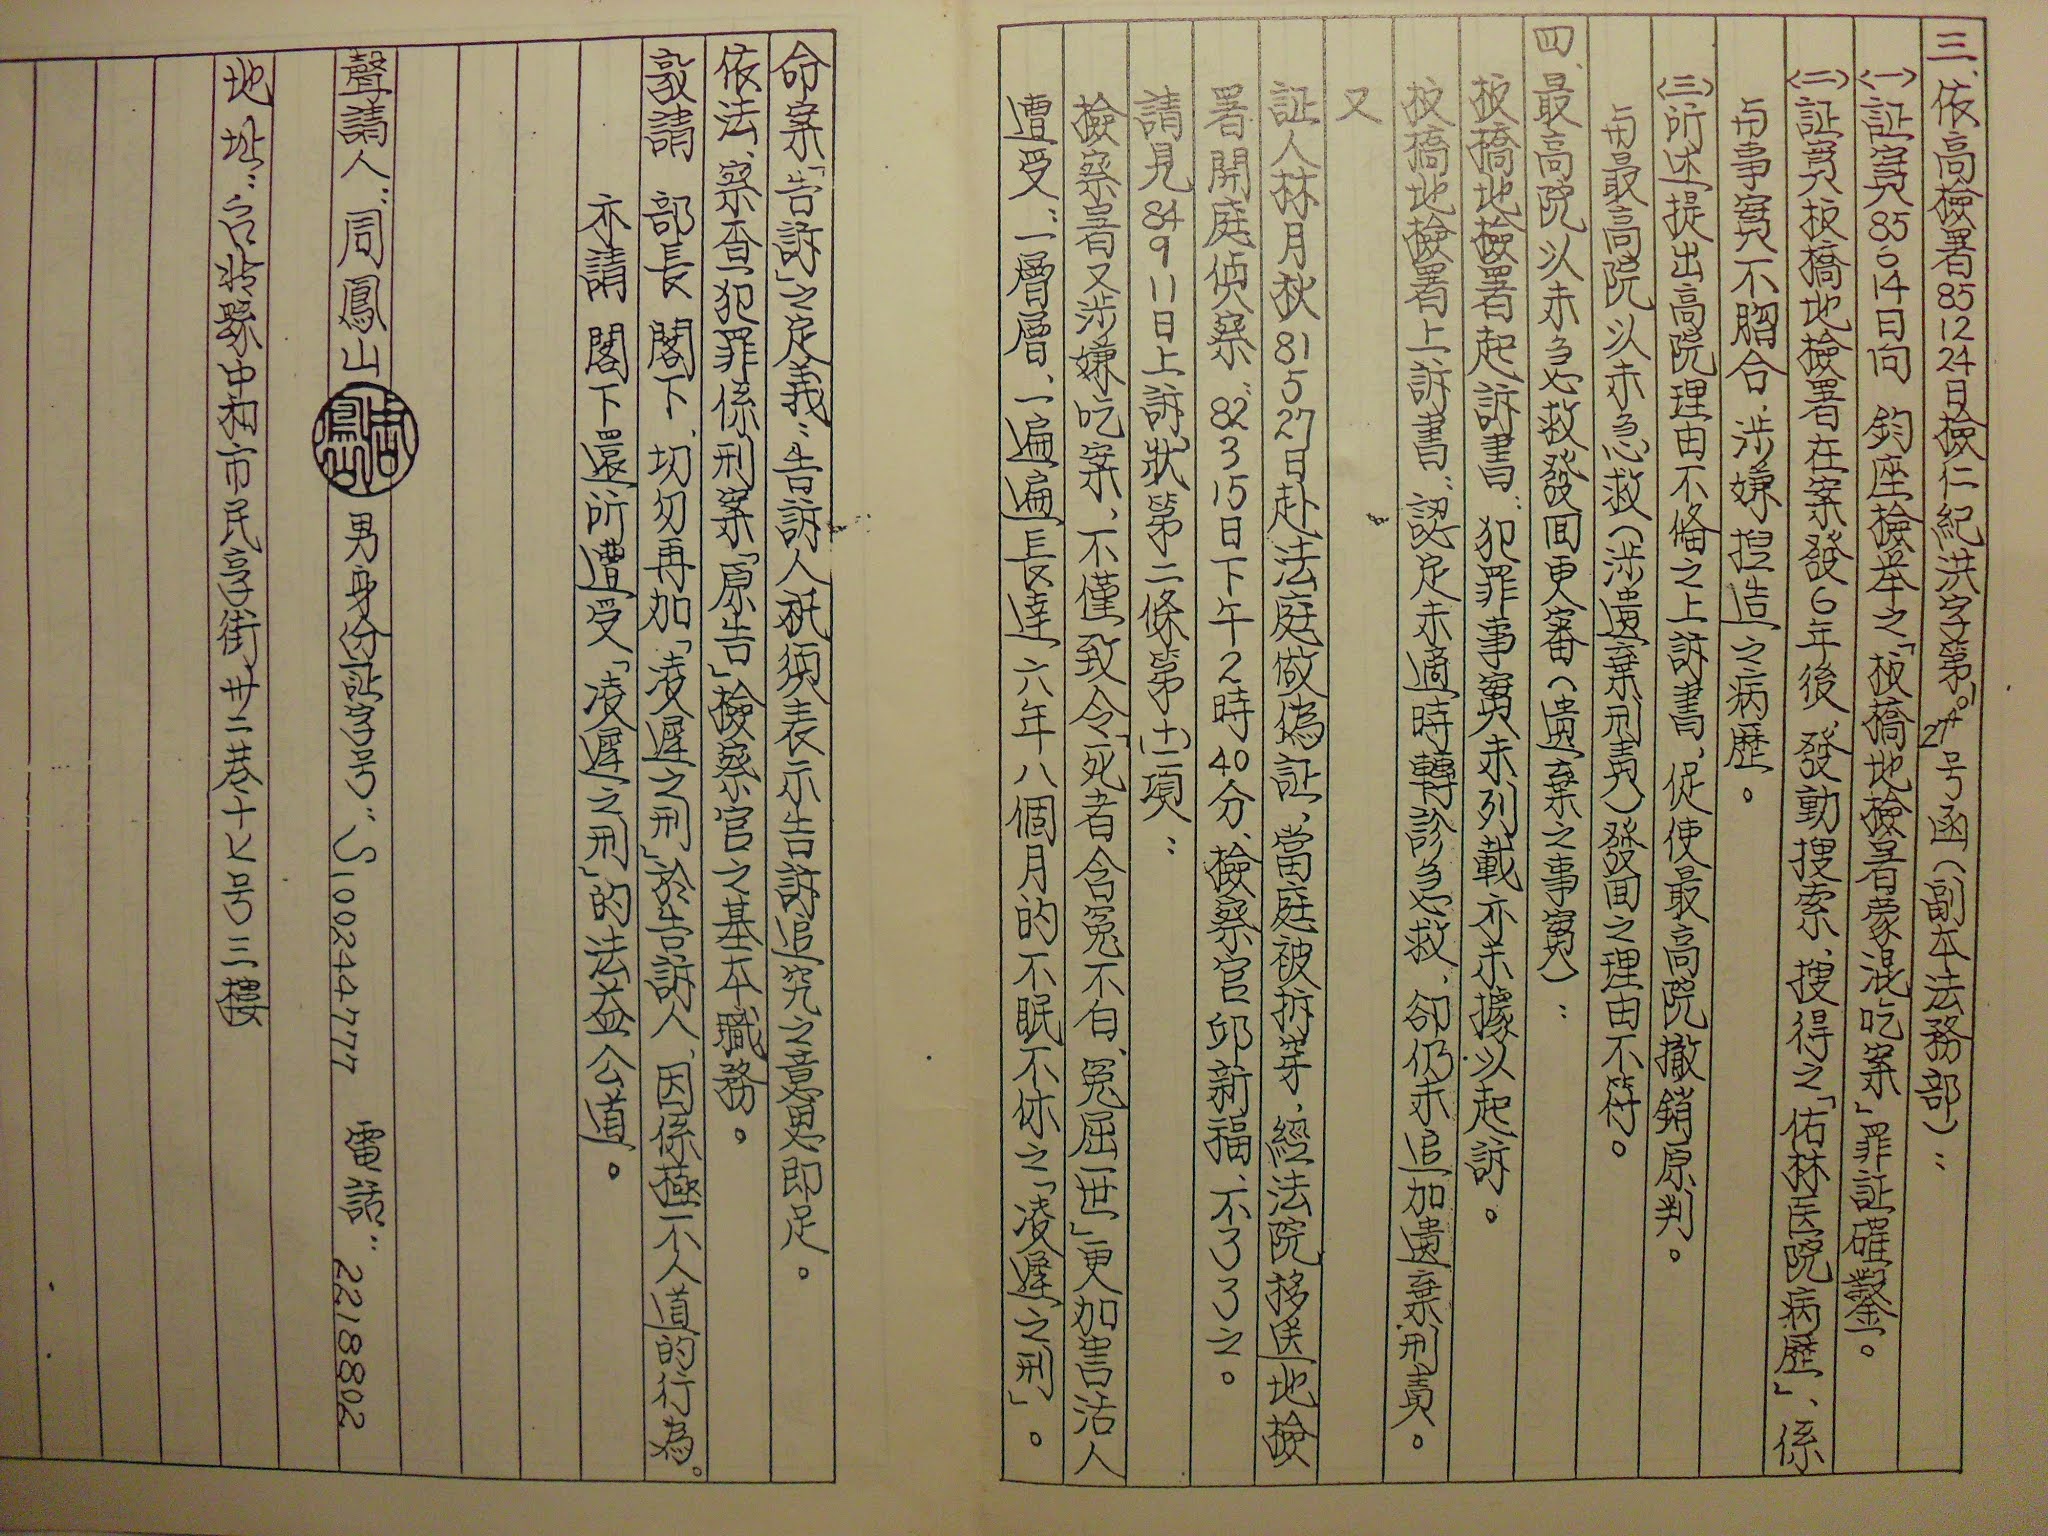 三、依高檢署85 12 24日檢仁紀洪字第 27号函(副本法務部)：
㈠証實85 6 14日向 鈞座檢举之「板橋地檢署蒙混吃案」罪証確鑿。
㈡証實板橋地檢署在案發6年後、發動搜索、搜得之「佑林医院病歷」、係
与事實不脗合、涉嫌揑造之病歷。
㈢所述提出高院理由不俻之上訴書、促使最高院撤銷原判。
与最高院以未急救(涉遺棄刑責)發回之理由不符。
四、最高院以未急救發回更審(遺棄之事實)：
板橋地檢署起訴書：犯罪事實未列載亦未據以起訴。
板橋地檢署上訴書：認定未適時轉診急救、卻仍未追加遺棄刑責。
又
証人林月秋81 5 27日赴法庭做偽証、當庭被拆穿、經法院移送地檢
署開庭偵察：82 3 15日下午2時40分、檢察官邱新福、不了了之。
請見84 9 11日上訴狀第二條第(十一)項：
檢察署又涉嫌吃案、不僅致令「死者含冤不白、冤屈一世」更加害活人
遭受：一層層、一遍遍長達六年八個月的不眠不休之「凌遲之刑」。
命案「告訴」之定義：告訴人祇須表示告訴追究之意思即足。
依法、察查犯罪係刑案「原告」檢察官之基本職務。
敦請 部長 閣下、切勿再加「凌遲之刑」於告訴人、因係極不人道的行為。
亦請 閣下還所遭受「凌遲之刑」的法益公道。
聲請人：周鳳山 男 身份証字号：S100244777 電話：2218802
地 址：台北縣中和市民享街卅二巷十七号三樓